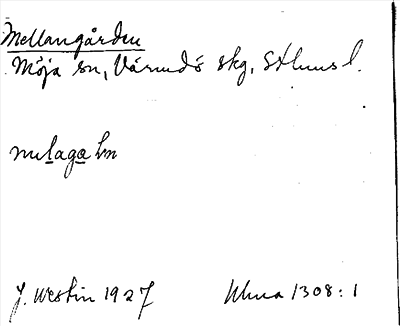 Mellangården
Möja sn, Värmdö skg, Sthlms l.
J. Westin 1927
Ulma 1308:1